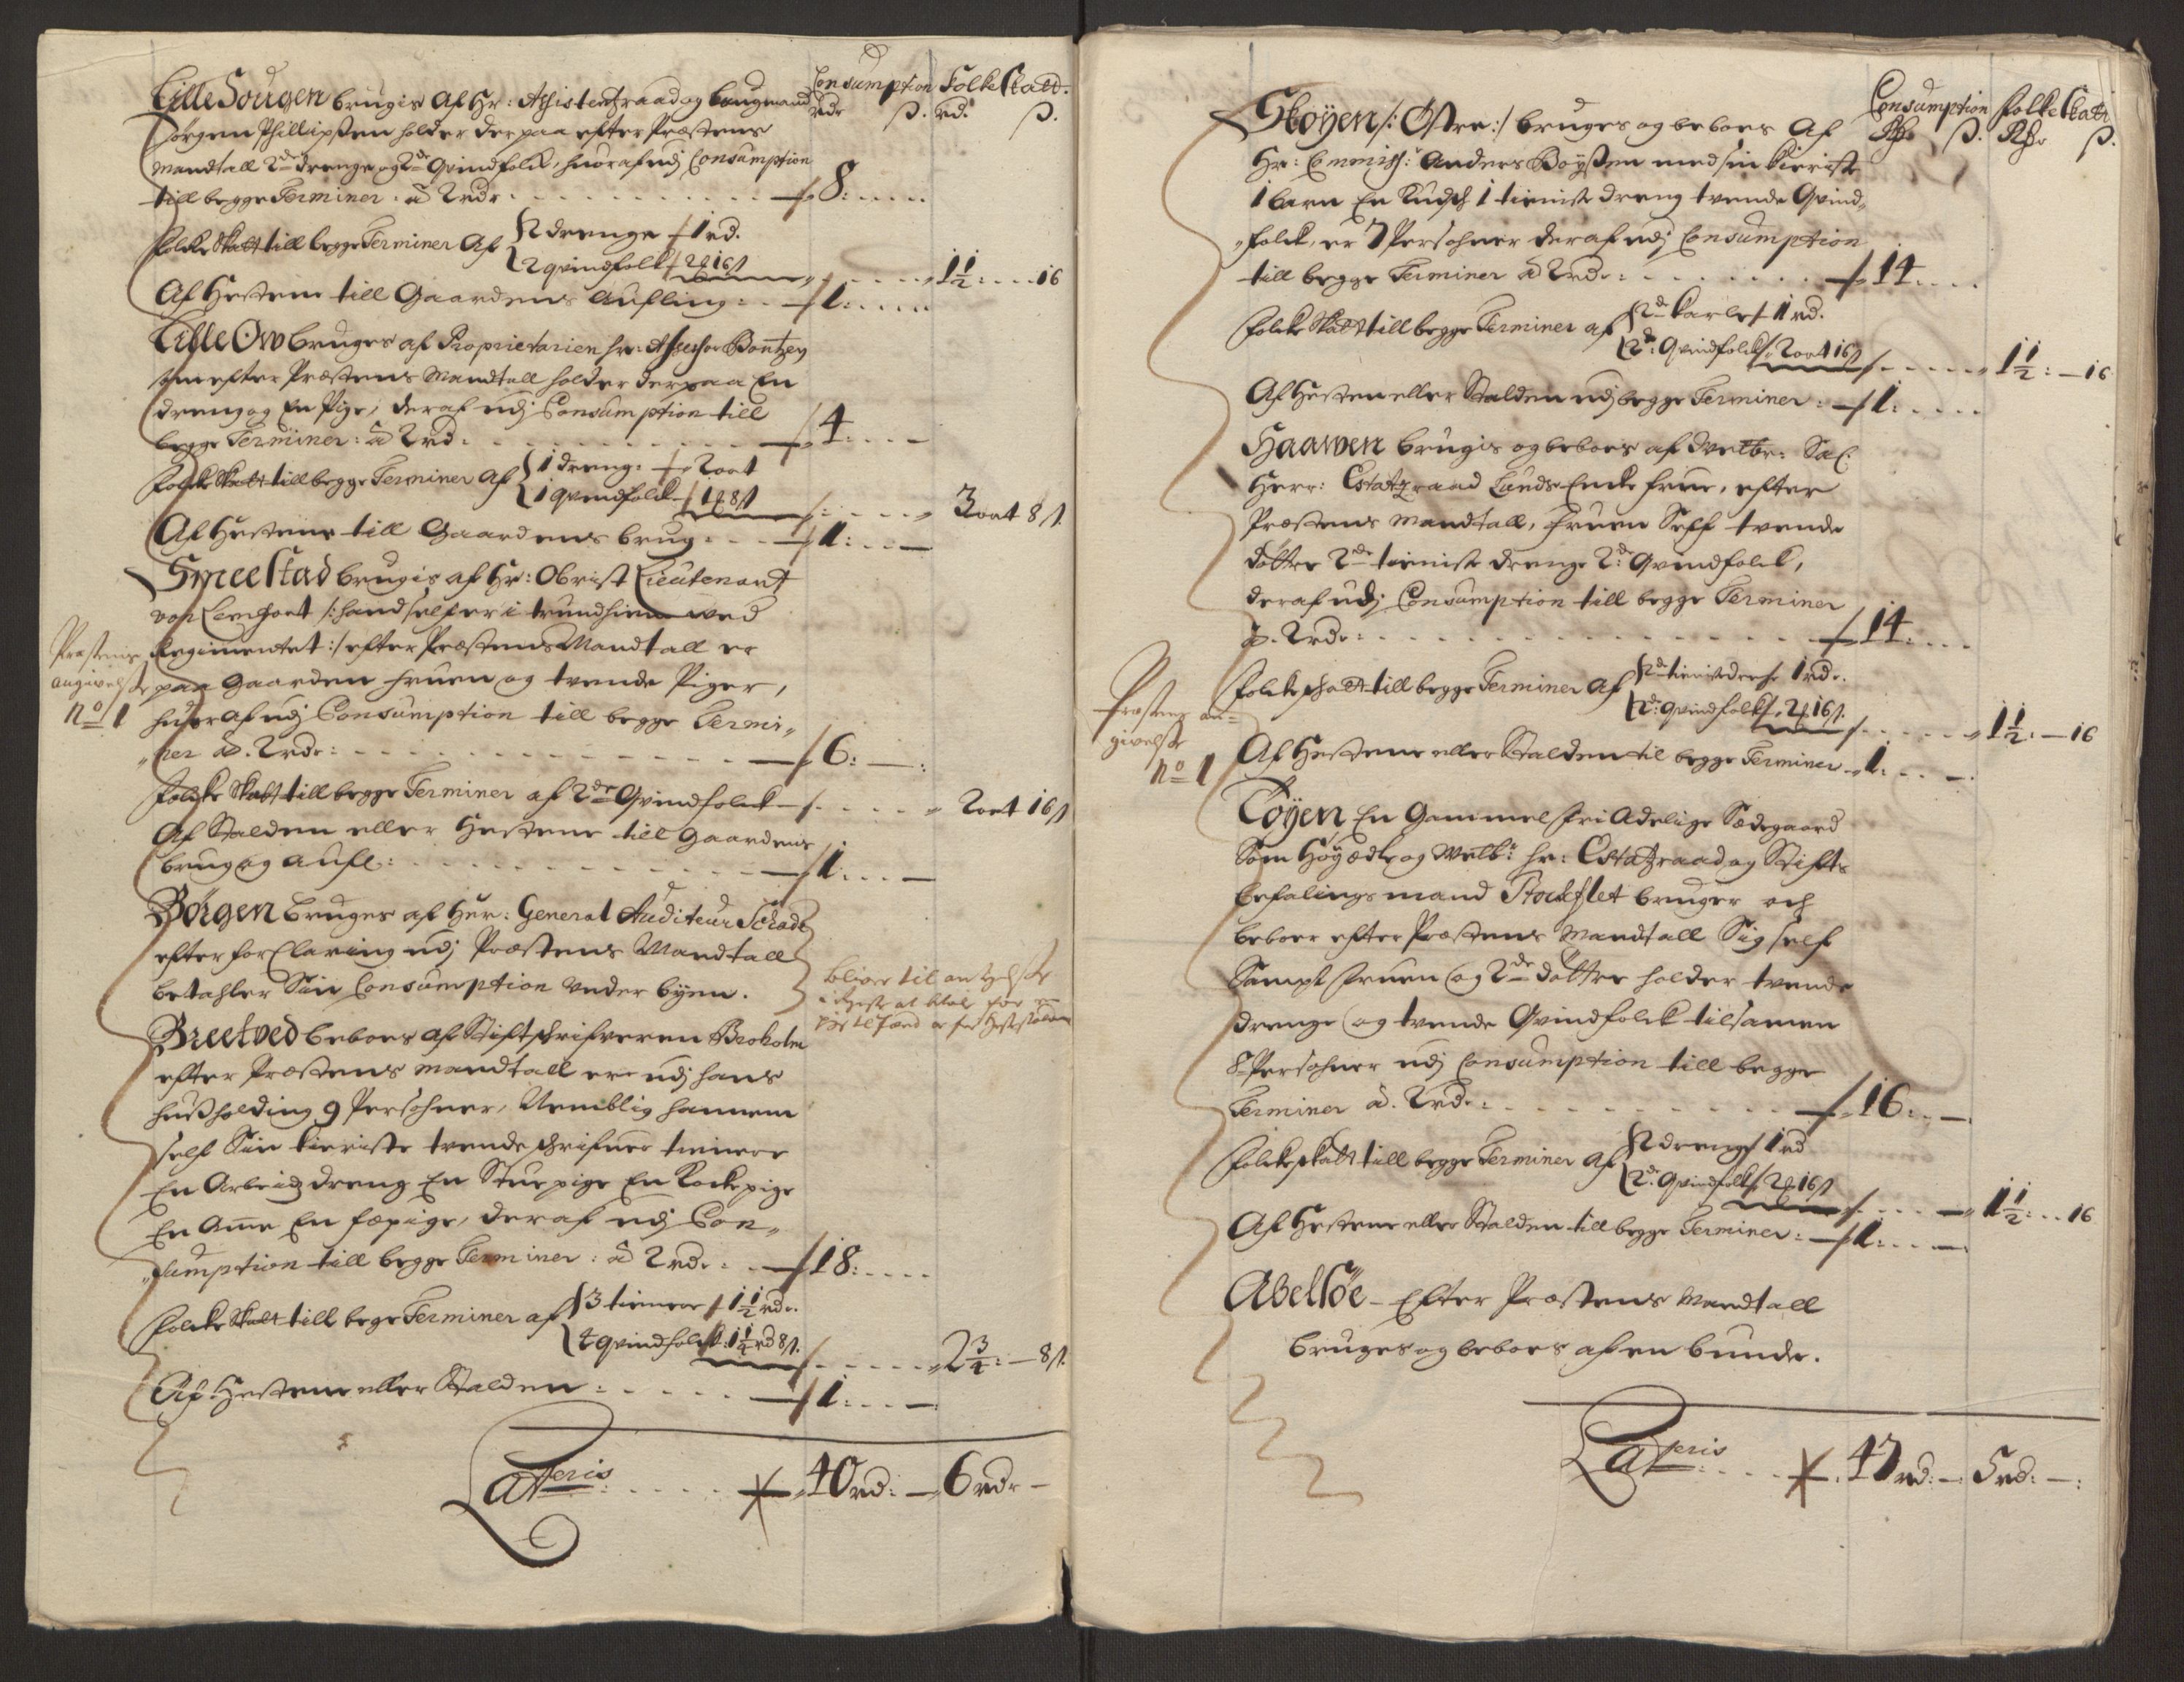 Consumption Folke Skatt.
rdr ß. rd. ß.
Lille Sougen brugis af Hr: Assistentzraad og Laugmand
Jørgen Phillipsen holder der paa efter Præstens
Mandtall 2de drenge og 2de Qvindfolk, huoraf udj Consumption
till begge Terminer: â 2 rdr 8:
Folcke Skatt till begge Terminer Af
2 drenge 1 rd.
2 qvindfolk 2 ꝑ 16 ß
1½: 16
Af Hestene till Gaardens Aufling: 1:
Lille Ow bruges af Proprietarien Hr: Assessor Bontzen
som efter Præstens Mandtall holder derpaa En
dreng og En Pige, deraf udj Consumption till
begge Terminer: â 2 rd: 4:
Folcke Skatt till begge Terminer Af
1 dreng: 2 ort
1 qvindfolck 1 ꝑ 8 ß
3 ort 8 ß.
Af Hestene till Gaardens brug: 1:
Smeestad brugis af Hr: Obrist Lieutenant
von /: hand self er i trundhiem ved
Regimentet :/ efter Præstens Mandtall er
paa Gaarden fruen og tvende Piger,
huoraf udj Consumption till begge Termi„
„ner â. 2 rdr: 6:
Præstens
angivelse
No 1
Folcke Skatt till begge Terminer af 2de Qvindfolck 2 ort 16 ß
Af Stalden eller Hestene till Gaardens
brug og aufl: 1:
Börgen bruges af Her: General Auditeur Schade
efter forClaring udj Præstens Mandtall
betahler Sin Consumption under byen.
bliver til
Breetved beboes af Stiftschrifveren Broholm
efter Præstens Mandtall ere udj hans
hussholding 9 Persohner, Nemblig hannem
self Sin kieriste tvende schrifver tienere
En Arbeidz dreng En Stue pige En Kocke pige
En Ame En fæpige, deraf udj Con„
„sumption till begge Terminer: â 2 rdr: 18:
Folcke Skatt till begge Terminer af
3 tienere 1½ rdr.
4 qvindfolck: 1¼ rd 8 ß.
2¾: 8 ß.
Af Hestene eller Stalden: 1:
Lateris 40 rd: 6 rdr
Consumption Folke Skatt
Rdr ß. Rdr ß.
Skøyen /: Østre :/ bruges og beboes Af
Hr: Commiss: Anders Boyssen med sin kieriste
1 barn En Kudsch 1 tieniste dreng tvende Qvind„
„folck, er 7 Persohner deraf udj Consumption
till begge Terminer â 2 rdr: 14:
Folcke Skatt till begge Terminer af
2de karle 1 rd.
2de: Qvindfolck 2 ort 16 ß
1½: 16
Af Hesten eller Stalden udj begge Terminer: 1:
Haawen brugis og beboes af Velbr: Sal:
Herr: Estatzraad Lunds Encke frue, efter
Præstens Mandtall, fruen Self tvende
døttre 2de tieniste drenge 2de Qvindfolck,
deraf udj Consumption till begge Terminer
p. 2 rdr: 14:
Folcke schatt till begge Terminer Af
1 rdr.
2de: qvindfolck, 2 ꝑ 16 ß.
1½: 16
Præstens an-
givelse
No 1
Af Hestene eller Stalden til begge Terminer 1:
Tøyen En Gammel fri Adelige Sædegaard
Som Høyædle og Welb: Hr: Estatzraad og Stifts
befalings mand Stockflet bruger och
beboer efter Præstens Mandtall Sig self
Sampt fruen og 2de døttre holder tvende
drenge og tvende Qvindfolck tilsamen
8 Persohner udj Consumption till begge
Terminer â. 2 rdr: 16:
Folcke skatt till begge Terminer Af
2 drenge 1 rd
2de: qvindfolck 2 ꝑ 16 ß
1½: 16
Af Hestene eller Stalden till begge Terminer: 1:
Abelsøe - Efter Præstens Mandtall
bruges og beboes af en bunde.
Lateris 47 rd: 5 rd: